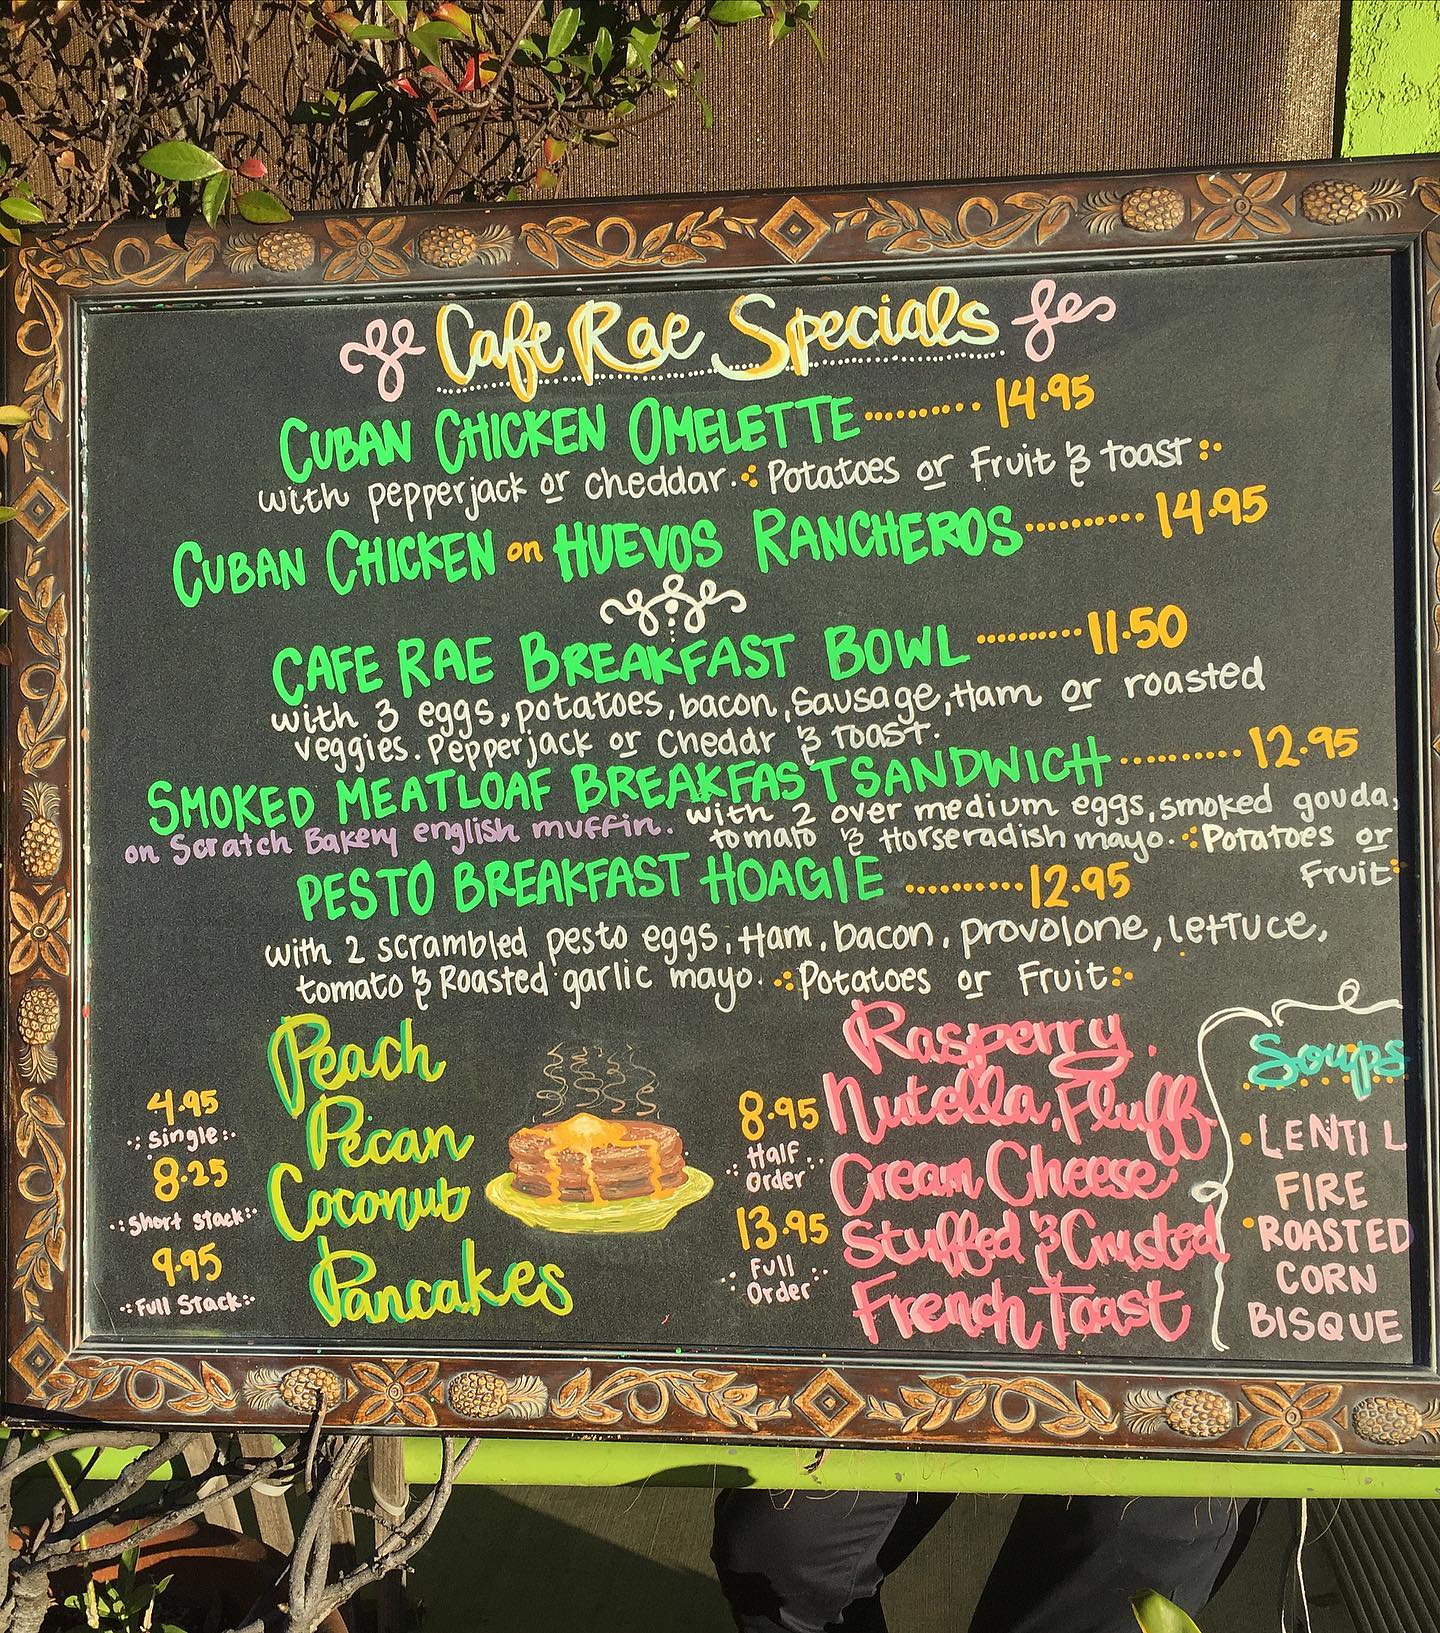 Cafe Rae Specials
CUBAN CHICKEN OMELETTE .......... 14.95
with pepperjack or cheddar. Potatoes or Fruit & toast
CUBAN CHICKEN on HUEVOS RANCHEROS .......... 14.95
CAFE RAE BREAKFAST BOWL .......... 11.50
with 3 eggs, potatoes, bacon, sausage, Ham or roasted
veggies. Pepperjack or Cheddr & toast.
SMOKED MEATLOAF BREAKFAST SANDWICH .......... 12.95
on Scratch Bakery english muffin. with 2 over medium eggs, smoked gouda,
tomato & Horseradish mayo. Potatoes or
Fruit
PESTO BREAKFAST HOAGIE .......... 12.95
with 2 scrambled pesto eggs, Ham, bacon, provolone, lettuce,
tomato & Roasted garlic mayo. Potatoes or Fruit
Peach
Pecan
Coconut
Pancakes
4.95
Single
8.25
Short Stack
9.95
Full Stack
Rasperry,
Nutella, Fluff
Cream Cheese
Stuffed & Crusted
French Toast
8.95
Half
Order
13.95
Full
Order
Soups
LENTIL
FIRE
ROASTED
CORN
BISQUE